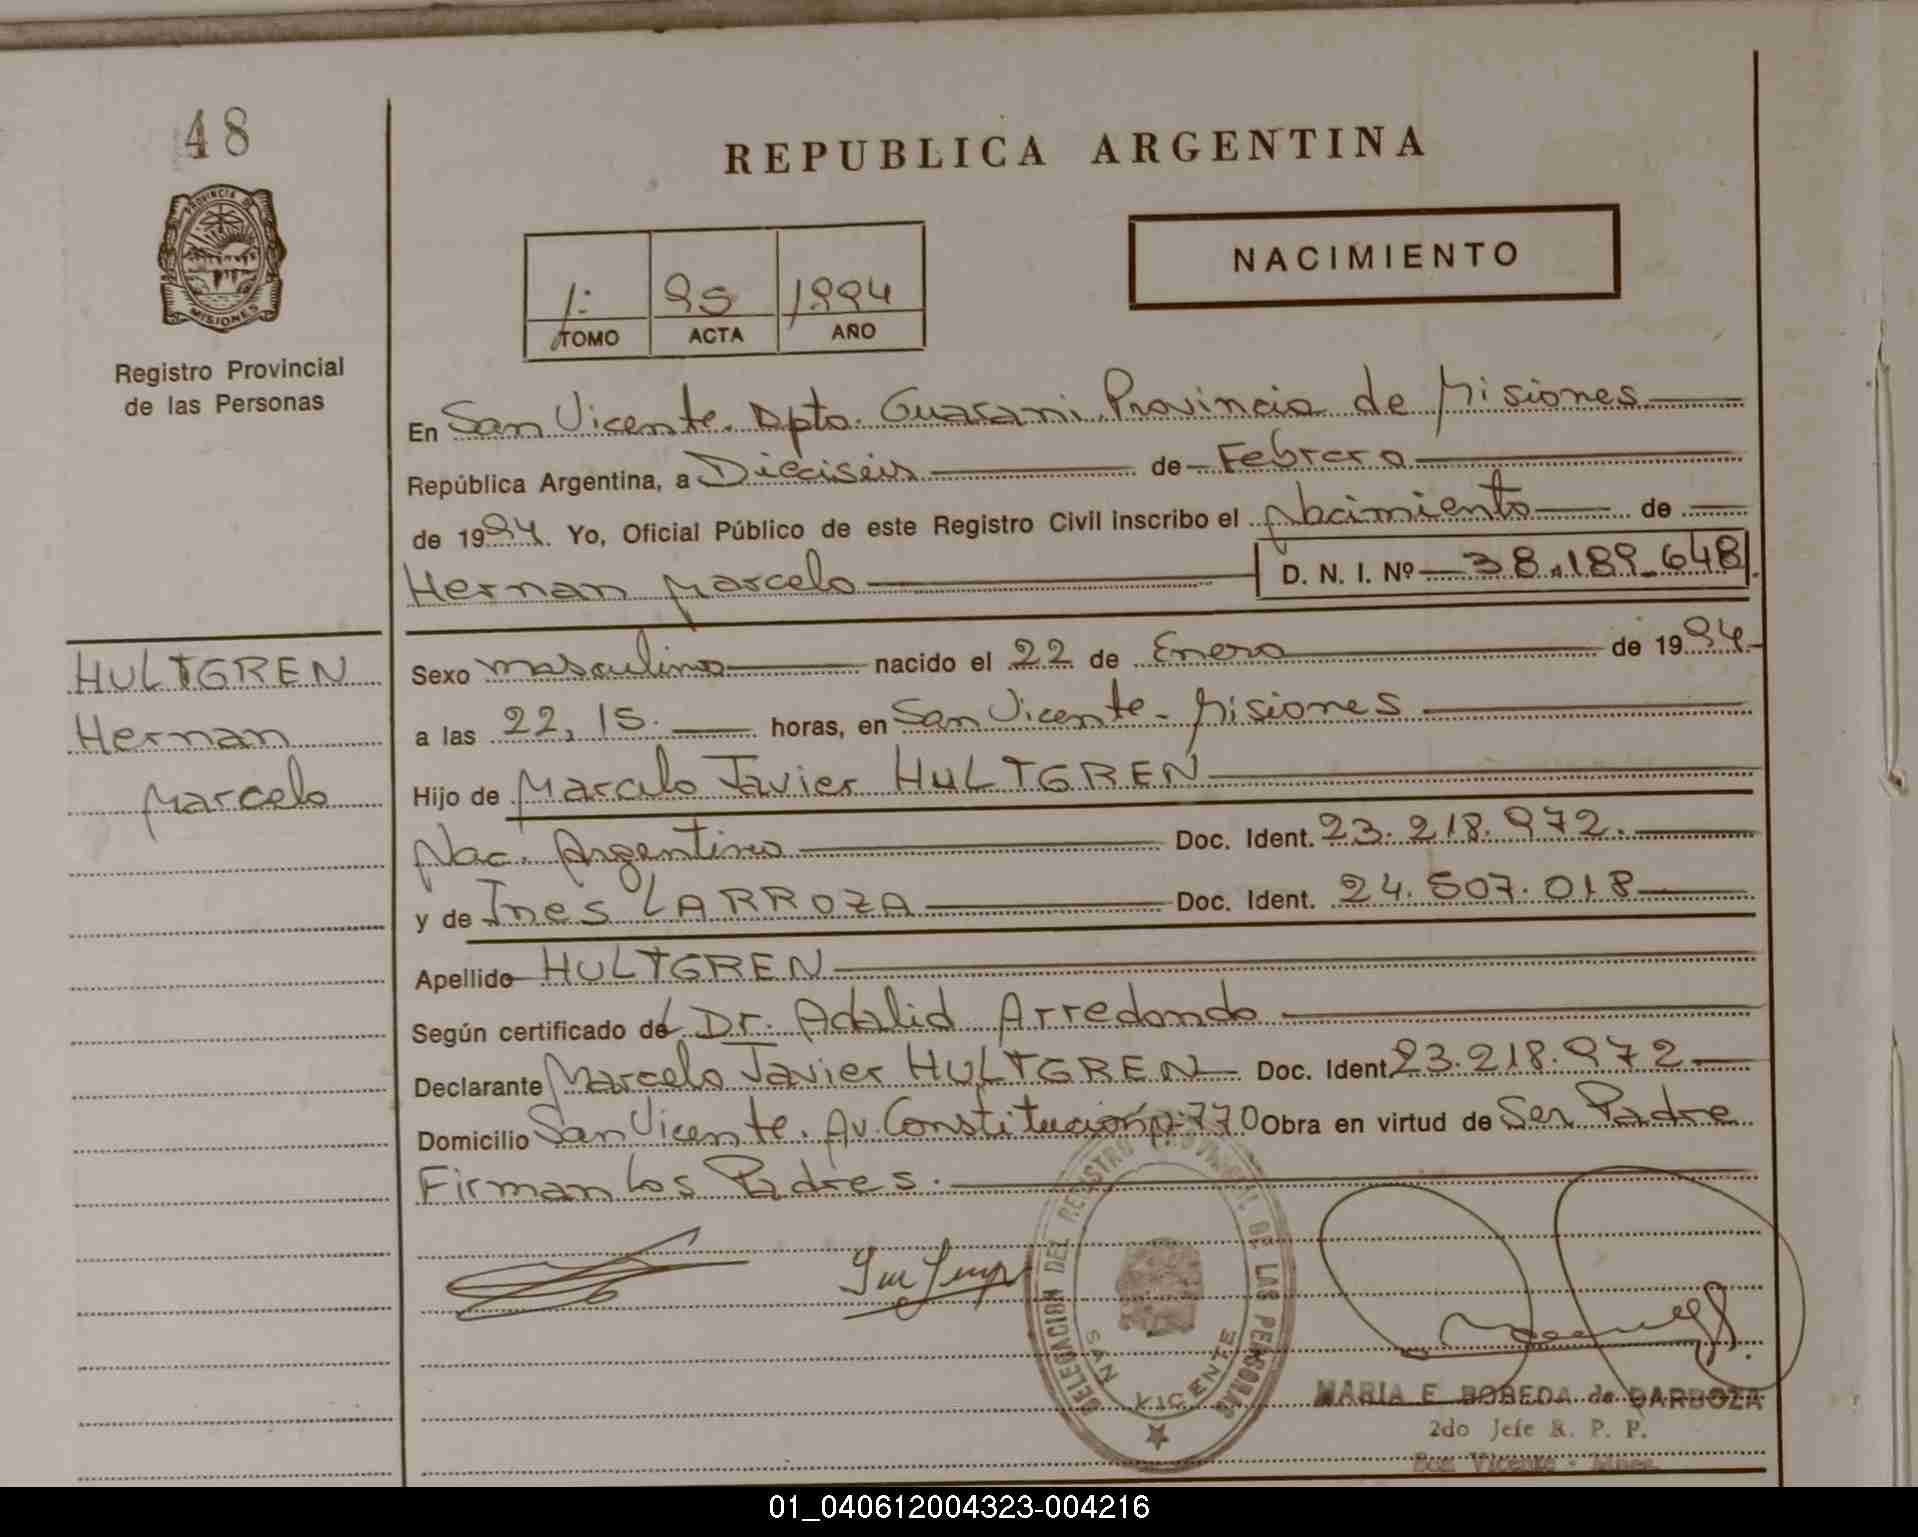 48
REPUBLICA ARGENTINA
PROVINCIA DE
MISIONES
Registro Provincial
de las Personas
1: 95 1994
TOMO ACTA AÑO
NACIMIENTO
En San Vicente. Dpto. Guarani. Provincia de Misiones
República Argentina, a Dieciseis de Febrero
de 1994. Yo, Oficial Público de este Registro Civil inscribo el Nacimiento de
Hernan Marcelo D. N. I. Nº 38.189.648
HULTGREN
Hernan
Marcelo
Sexo masculino nacido el 22 de Enero de 1994
a las 22,15. horas, en San Vicente - Misiones
Hijo de Marcelo Javier HULTGREN
Nac. Argentino Doc. Ident. 23.218.972.
y de Ines LARROZA Doc. Ident. 24.507.018
Apellido HULTGREN
Según certificado del Dr. Adalid Arredondo
Declarante Marcelo Javier HULTGREN Doc. Ident. 23.218.972
Domicilio San Vicente. Av. Constitución 770 Obra en virtud de Ser Padre
Firman los Padres.
DELEGACION DEL REGISTRO PROVINCIAL DE LAS PERSONAS
SAN VICENTE
MARIA E. BOBEDA de BARBOZA
2do Jefe R. P. P.
San Vicente - Mnes.
01_040612004323-004216